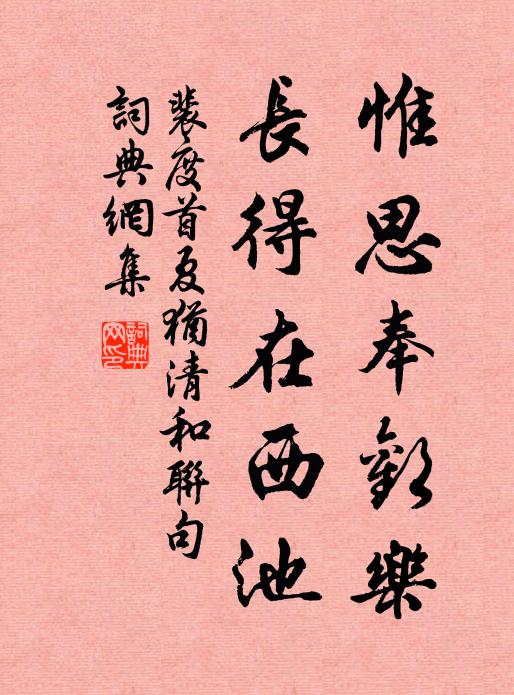 惟思奉歡樂
長得在西池
裴度首夏猶清和聯句
詞典網集
詞典網印